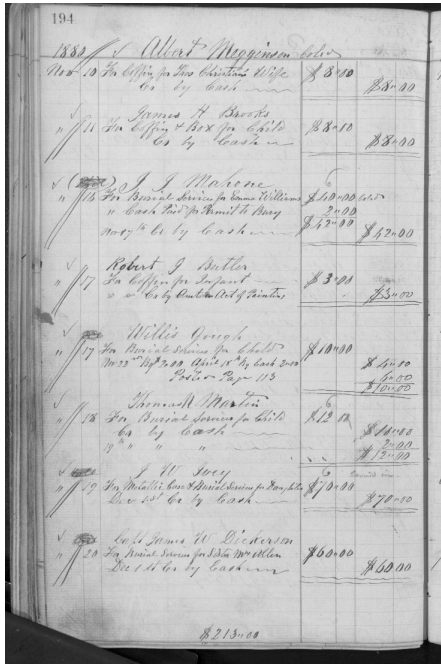 194
1880 Albert Megginson Cold
Nov 10 For Coffin for Thos Christian's Wife $8"00
Cr by Cash $8"00
James H Brooks
" 11 For Coffin & Box for Child $8"00
Cr by Cash $8"00
J J Mahone
" 14 For Burial Services for Emma Williams $40"00 Cold
" Cash Paid for Permit to Bury 2"00
Nov 17th Cr by Cash $42"00 $42"00
Robert J Butler
" 17 For Coffin for Infant $3"00
" " Cr by Am't on Act of Painting $3"00
Willis Gough
" 17 For Burial Services for Child $10"00
Nov 22nd 2"00 April 18th By Cash 2"00 $4"00
Posted Page 113 6"00
$10"00
Thomas Martin
" 18 For Burial Services for Child $12"00
Cr by Cash $10"00
19th " " " 2"00
$12"00
J W Ivey
" 19 For Metallic Case & Burial Services for Daughter $70"00
Dec 1st Cr by Cash $70"00
Capt James W Dickerson
" 20 For Burial Services for Sister Mrs Allen $60"00
Dec 1st Cr by Cash $60"00
$213"00